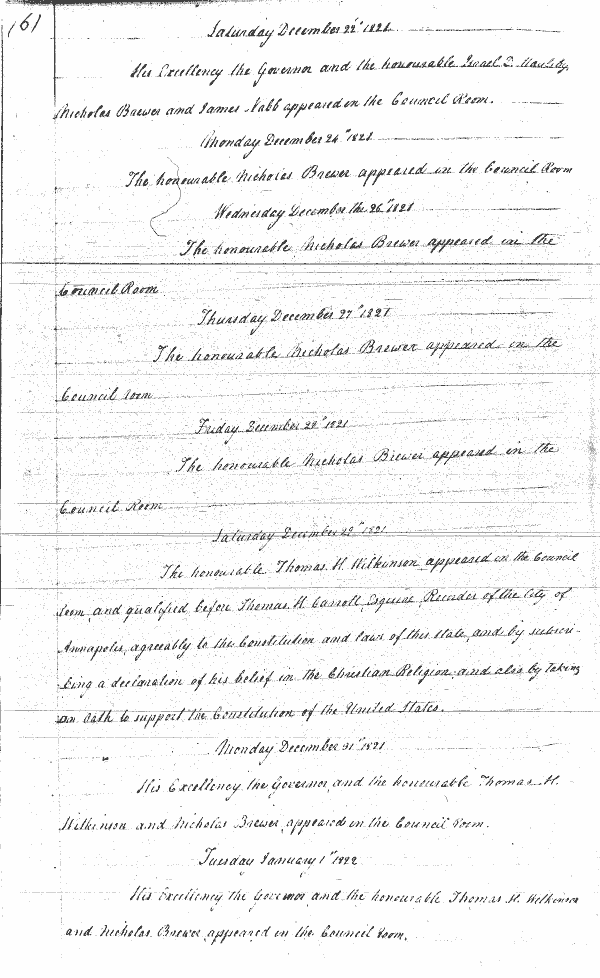 161
Saturday December 22d 1821.
His Excellency the Governor and the honourable Israel D. Maulsby,
Nicholas Brewer and James Nabb appeared in the Council Room.
Monday December 24th 1821
The honourable Nicholas Brewer appeared in the Council Room
Wednesday December the 26th 1821
The honourable Nicholas Brewer appeared in the
Council Room
Thursday December 27th 1821
The honourable Nicholas Brewer appeared in the
Council room
Friday December 28th 1821
The honourable Nicholas Brewer appeared in the
Council Room
Saturday December 29th 1821
The honourable Thomas H. Wilkinson appeared in the Council
room, and qualified before Thomas H. Carroll Esquire Recorder of the City of
Annapolis, agreeably to the Constitution and laws of this state, and by subscri-
bing a declaration of his belief in the Christian Religion and also by taking
an Oath to support the Constitution of the United States.
Monday December 31st 1821
His Excellency the Governor and the honourable Thomas H.
Wilkinson and Nicholas Brewer, appeared in the Council room.
Tuesday January 1st 1822
His Excellency the Governor and the honourable Thomas H. Wilkinson
and Nicholas Brewer, appeared in the Council room.